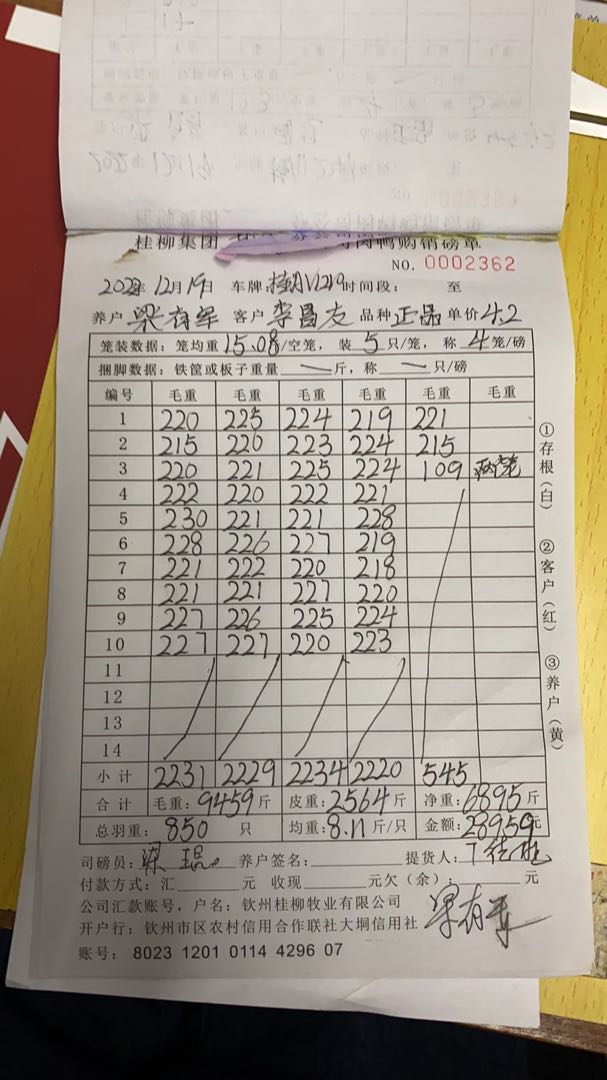 0002362
桂柳集团 肉鸭购销磅单
NO. 0002362
2022年 12月19日 车牌: 时间段: 至
养户 梁有军 客户 李昌友 品种 正品 单价 4.2
笼装数据: 笼均重 15.08/空笼, 装 5 只/笼, 称 4 笼/磅
捆脚数据: 铁筐或板子重量 — 斤, 称 — 只/磅
编号 毛重 毛重 毛重 毛重 毛重 毛重
1 220 225 224 219 221
2 215 220 223 224 215
3 220 221 225 224 109 两笼
4 222 220 222 221
5 230 221 221 228
6 228 226 227 219
7 221 222 220 218
8 221 221 227 220
9 227 226 225 224
10 227 227 220 223
11
12
13
14
小计 2231 2229 2234 2220 545
合计 毛重: 9459 斤 皮重: 2564 斤 净重: 6895 斤
总羽重: 850 只 均重: 8.11 斤/只 金额: 28959 元
司磅员: 梁 养户签名: 提货人:
付款方式: 汇 元 收现 元欠(余): 元
公司汇款账号, 户名: 钦州桂柳牧业有限公司
开户行: 钦州市区农村信用合作联社大垌信用社
梁有军
账号: 8023 1201 0114 4296 07
①存根(白)
②客户(红)
③养户(黄)